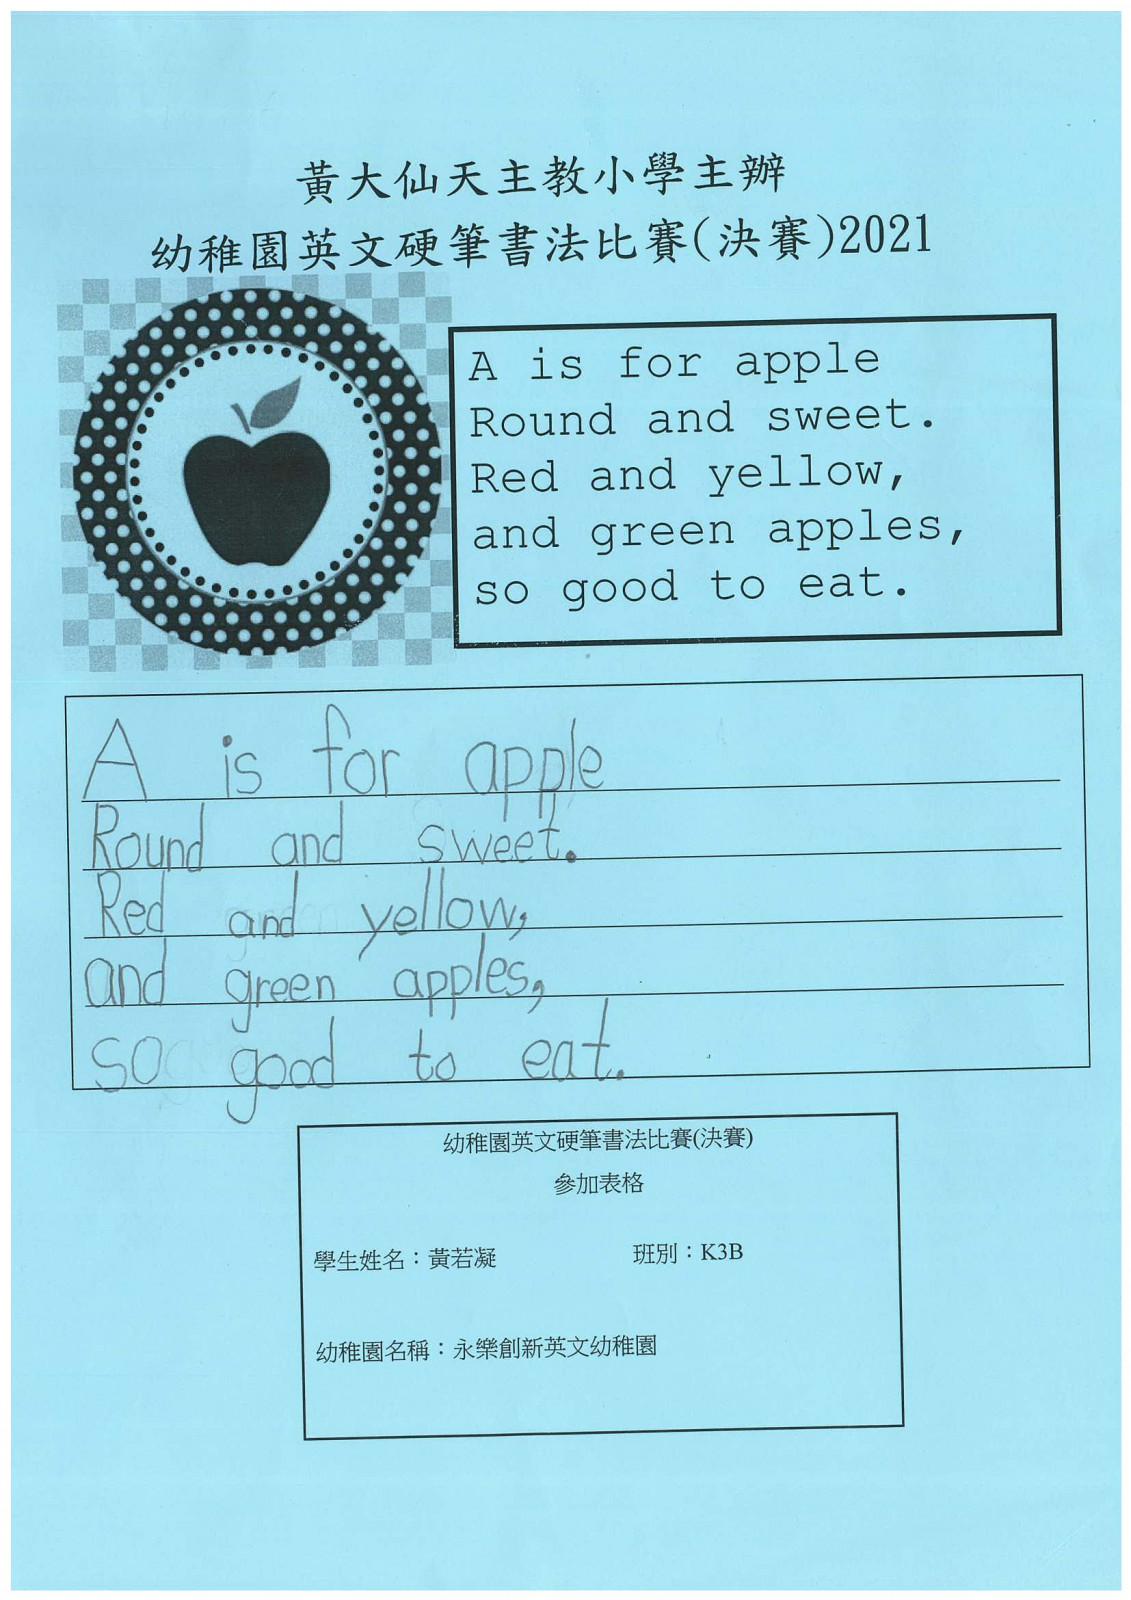 黃大仙天主教小學主辦
幼稚園英文硬筆書法比賽(決賽)2021
A is for apple
Round and sweet.
Red and yellow,
and green apples,
so good to eat.
A is for apple
Round and sweet.
Red and yellow,
and green apples,
so good to eat.
幼稚園英文硬筆書法比賽(決賽)
參加表格
學生姓名：黃若凝 班別：K3B
幼稚園名稱：永樂創新英文幼稚園